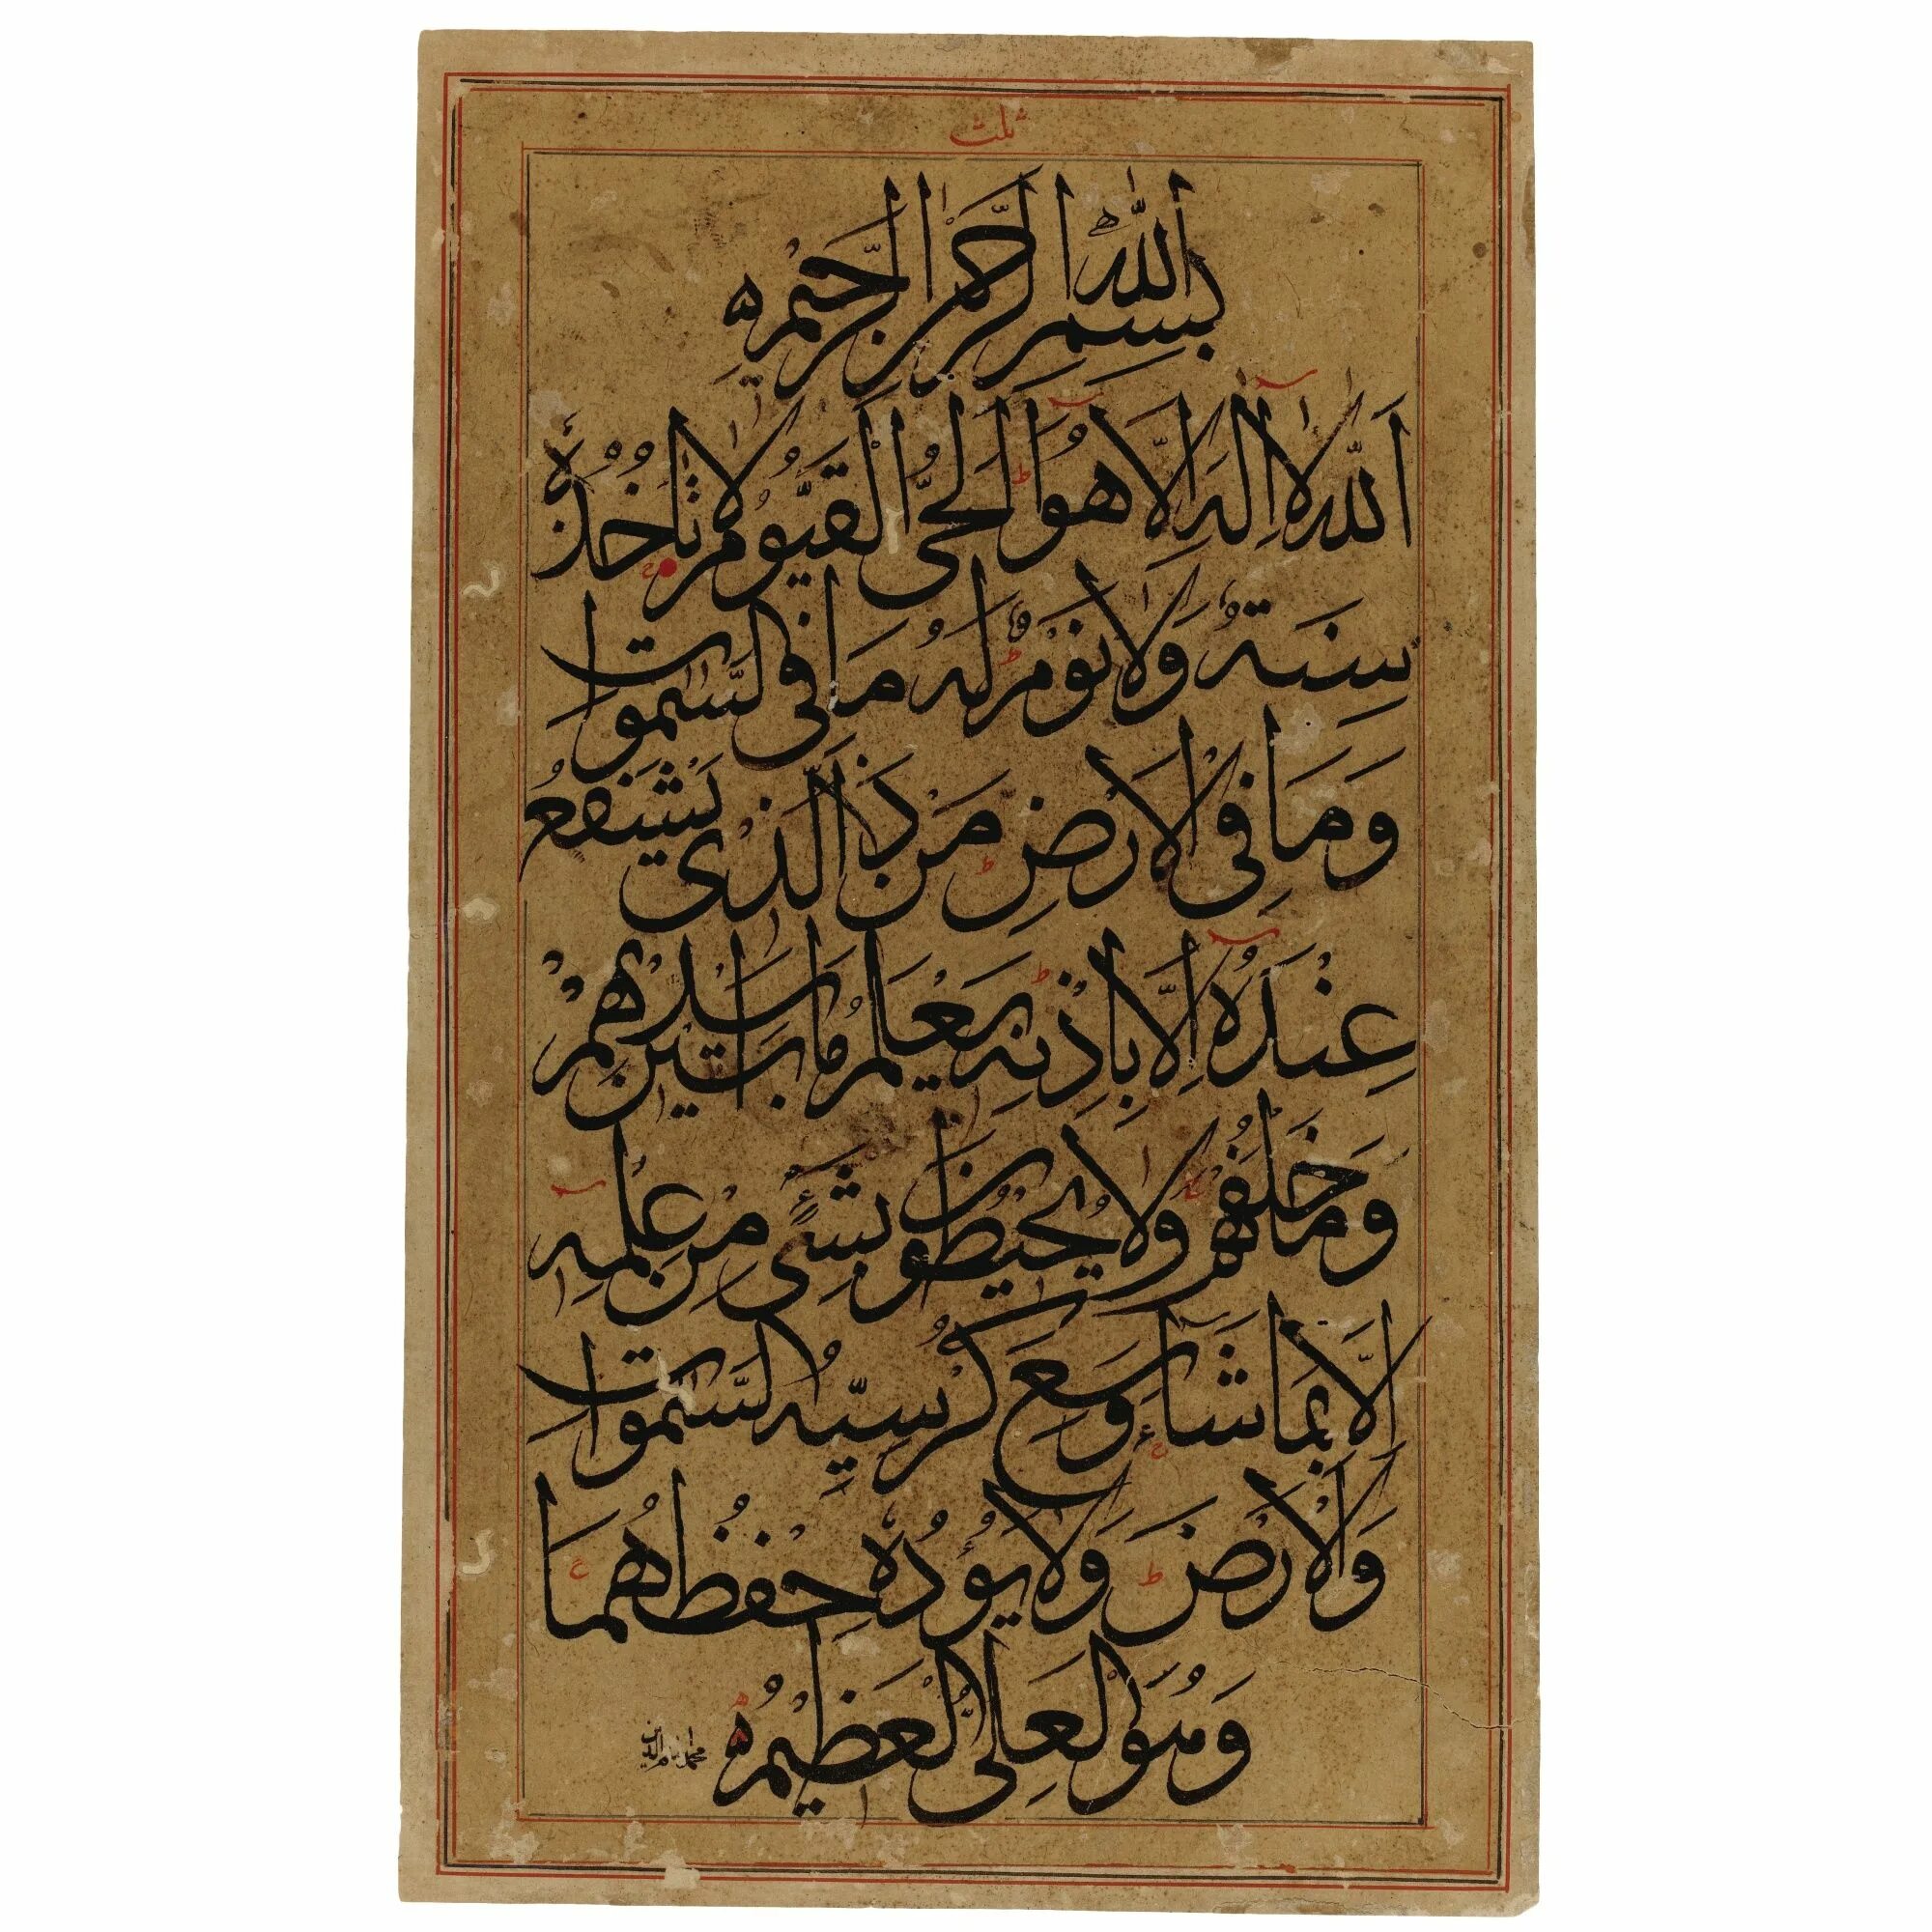 ثلث
بِسْمِ اللّٰهِ الرَّحْمٰنِ الرَّحِيْمِ ه
اَللّٰهُ لَا اِلٰهَ اِلَّا هُوَ ط اَلْحَىُّ الْقَيُّوْمُ لَا تَاْخُذُهٗ
سِنَةٌ وَلَا نَوْمٌ ط لَهُ مَا فِى السَّمٰوَاتِ
وَمَا فِى الْاَرْضِ ط مَنْ ذَا الَّذِىْ يَشْفَعُ
عِنْدَهُ اِلَّا بِاِذْنِهٖ ط يَعْلَمُ مَا بَيْنَ اَيْدِيْهِمْ
وَمَا خَلْفَهُمْ وَلَا يُحِيْطُوْنَ بِشَىْءٍ مِنْ عِلْمِهٖ
اِلَّا بِمَا شَاءَ ج وَسِعَ كُرْسِيُّهُ السَّمٰوَاتِ
وَالْاَرْضَ ط وَلَا يَؤُدُهٗ حِفْظُهُمَا ج
وَهُوَ الْعَلِىُّ الْعَظِيْمُ ه